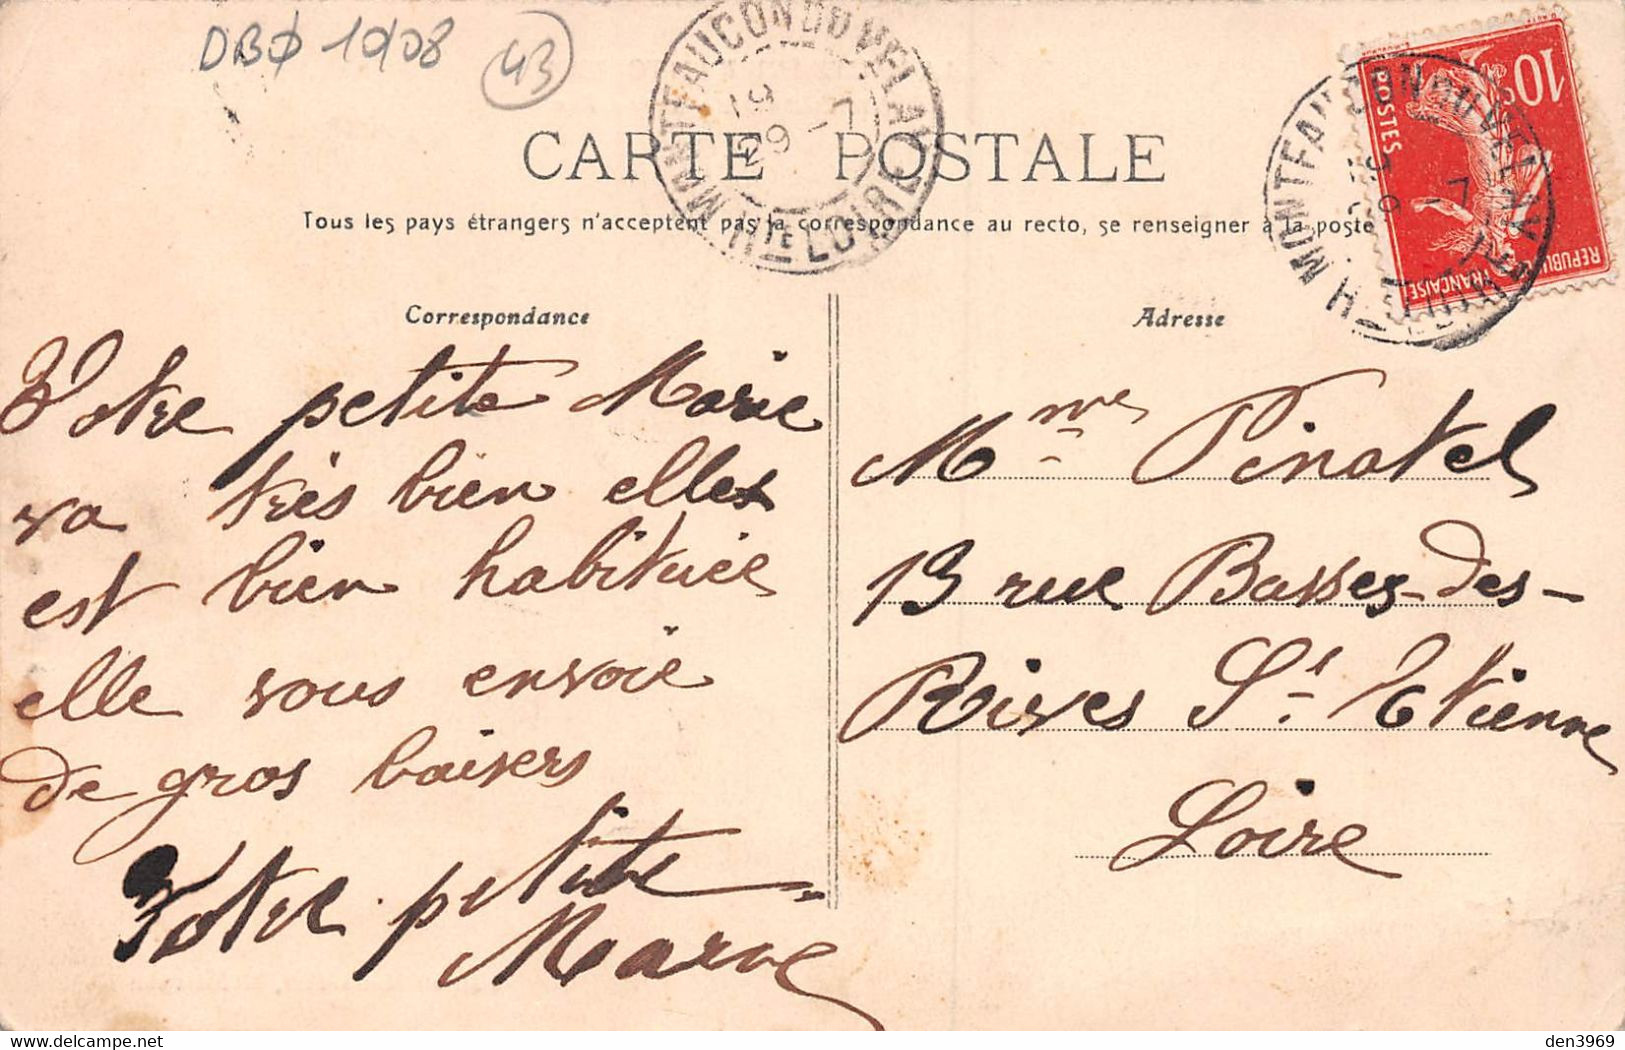 DBØ 1908 43
MONTFAUCON DU VELAY
Hte LOIRE
CARTE POSTALE
Tous les pays étrangers n'acceptent pas la correspondance au recto, se renseigner à la poste
10c
POSTES
REPUBLIQUE FRANÇAISE
MONTFAUCON DU VELAY
Correspondance
Votre petite Marie
va très bien elle
est bien habituée
elle vous envoie
de gros baisers
Votre petite
Marie
Adresse
Mme Pinatel
13 rue Basses-des-
Rives St. Etienne
Loire
den3969